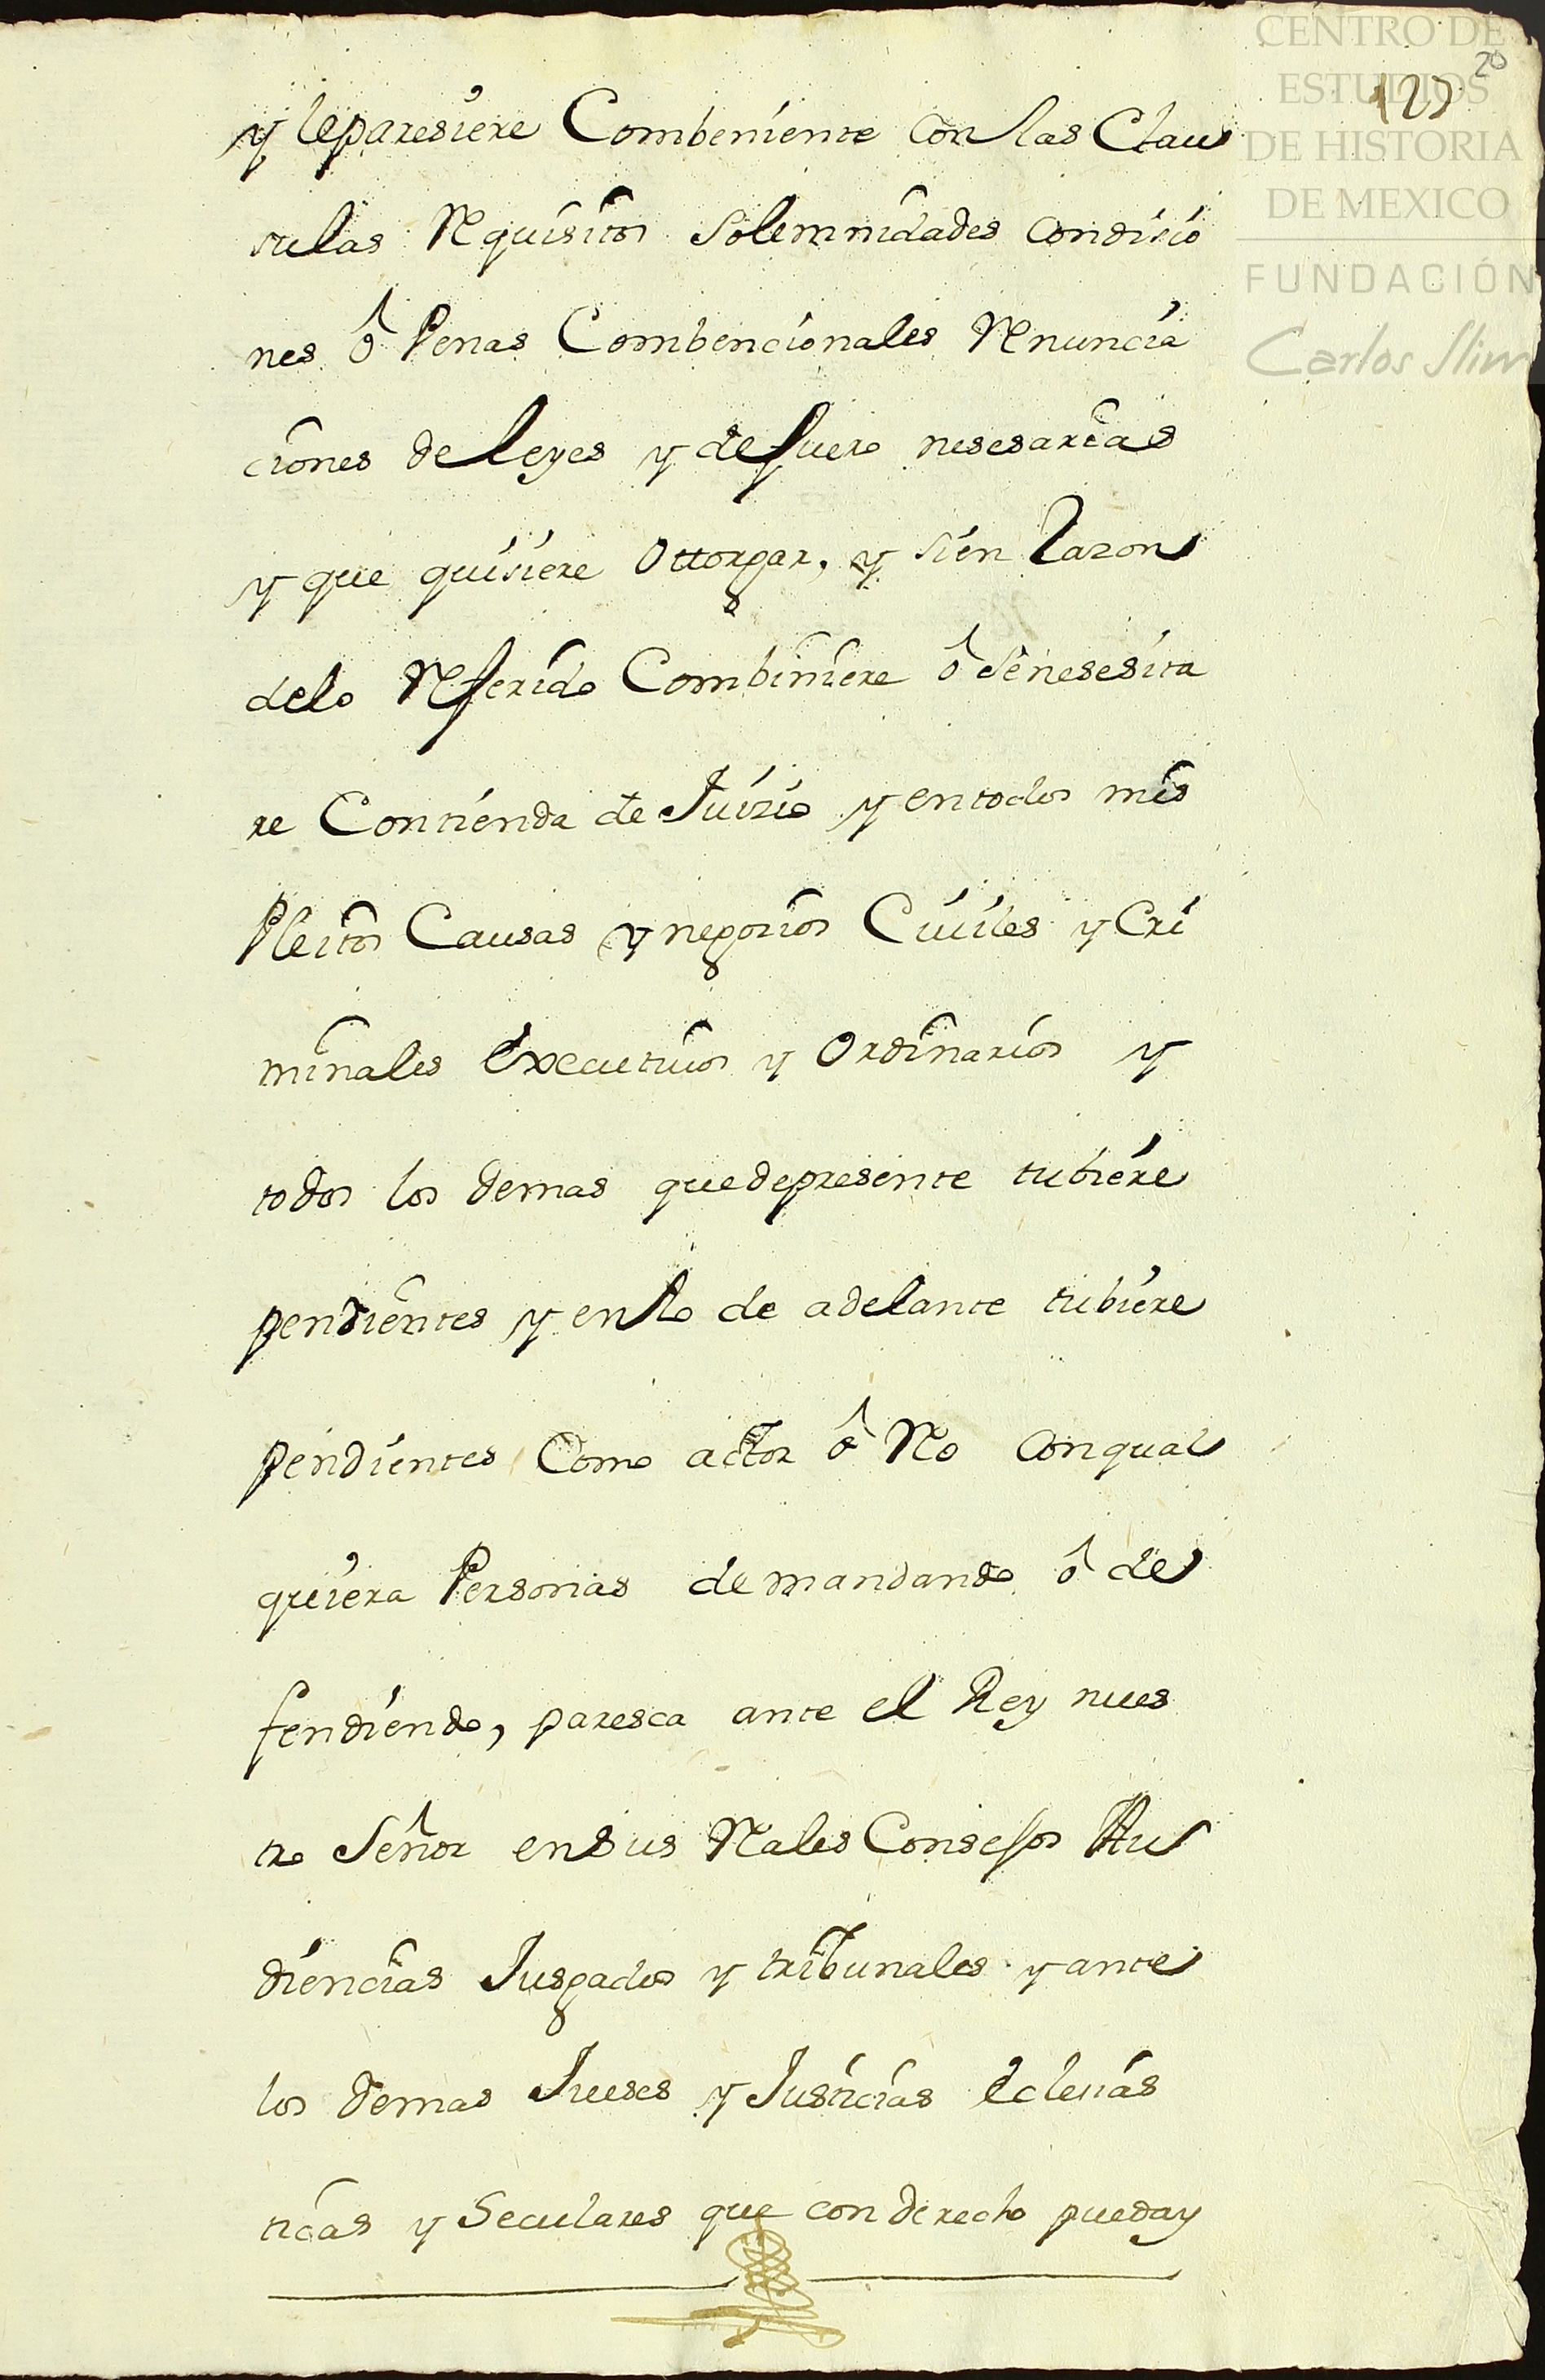 CENTRO DE
ESTUDIOS
DE HISTORIA
DE MEXICO
FUNDACIÓN
Carlos Slim
20
y leparesiere Combeniente Con las Clau
sulas Requisitos Solemnidades Condicio
nes ô Penas Combencionales Renuncia
ciones de leyes y de fuero nesesarias
y que quisiere Ottorgar, y si en Razon
delo Referido Combiniere ô se nesesita
re Contienda de Juizio y entodos mis
Pleitos Causas y negosios Ciuiles y Cri
minales Executiuos y Ordinarios y
todos los demas quedepresente tubiere
pendientes y enlo de adelante tubiere
pendientes Como actor ô Reo Conqual
quiera Personas demandando ô de
fendiendo, paresca ante el Rey nues
tro Señor ensus Reales Consejos Au
diencias Jusgados y tribunales y ante
los demas Jueses y Justicias Eclesias
ticas y Seculares que con derecho pueda y